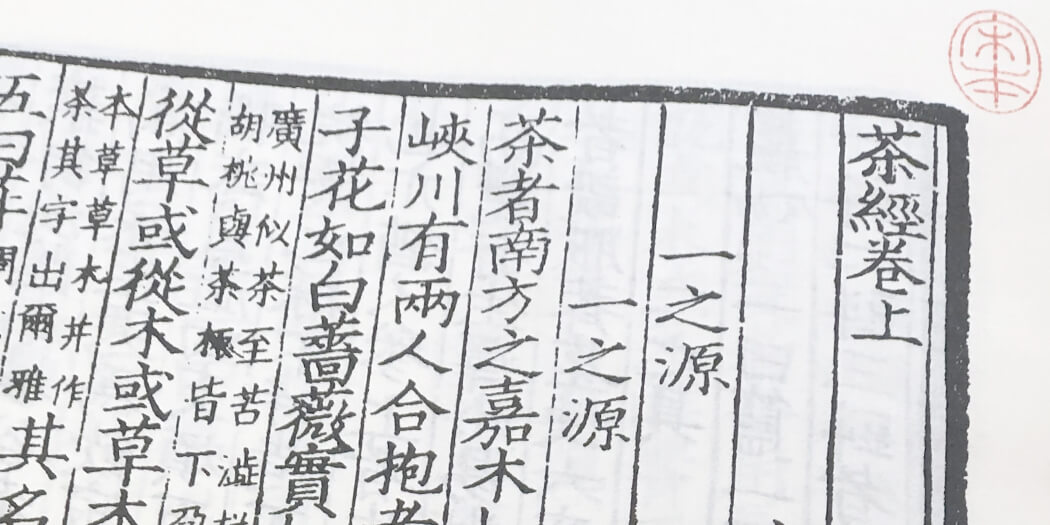 茶經卷上
一之源
一之源
茶者南方之嘉木
峽川有兩人合抱者
子花如白薔薇實
廣州似茶至苦澁
胡桃與茶皆下孕
從草或從木或草木
本草草木并作
茶其字出爾雅
其名
五曰